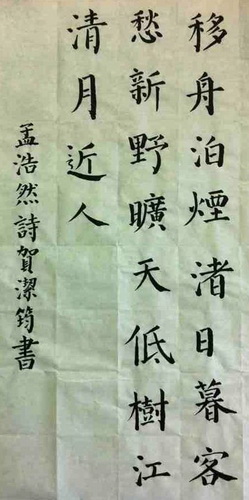 移舟泊煙渚日暮客
愁新野曠天低樹江
清月近人
孟浩然詩賀潔筠書